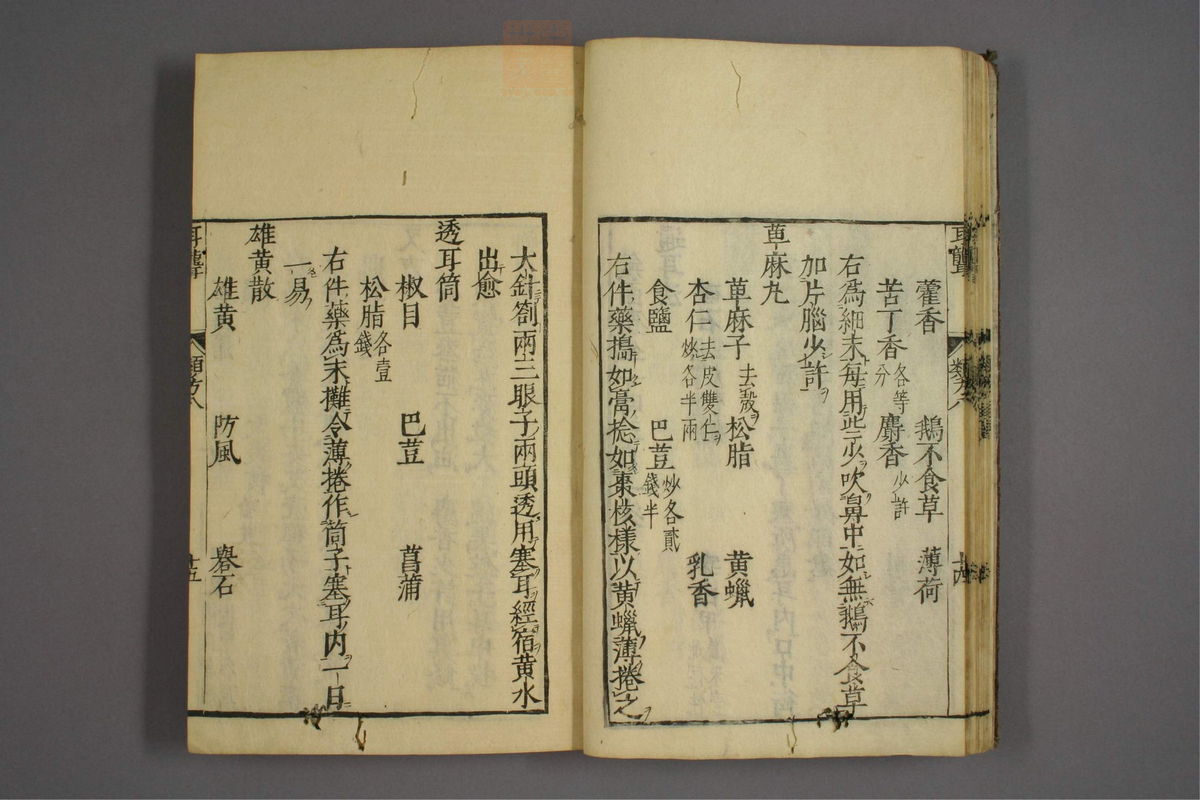 耳聾
類方八
十四
藿香　鵝不食草　薄荷
苦丁香各等分　麝香少許
右爲細末每用些少吹鼻中如無鵝不食草
加片腦少許
萆麻丸
萆麻子去殼　松脂　黃蠟
杏仁去皮雙仁炒各半兩　乳香
食鹽　巴荳炒各貳錢半
右件藥搗如膏捻如棗核樣以黃蠟薄捲之
大針劄兩三眼子兩頭透用塞耳經宿黃水
出愈
透耳筒
椒目　巴荳　菖蒲
松脂各壹錢
右件藥爲末攤令薄捲作筒子塞耳內一日
一易
雄黃散
雄黃　防風　礜石
耳聾
類方八
十五